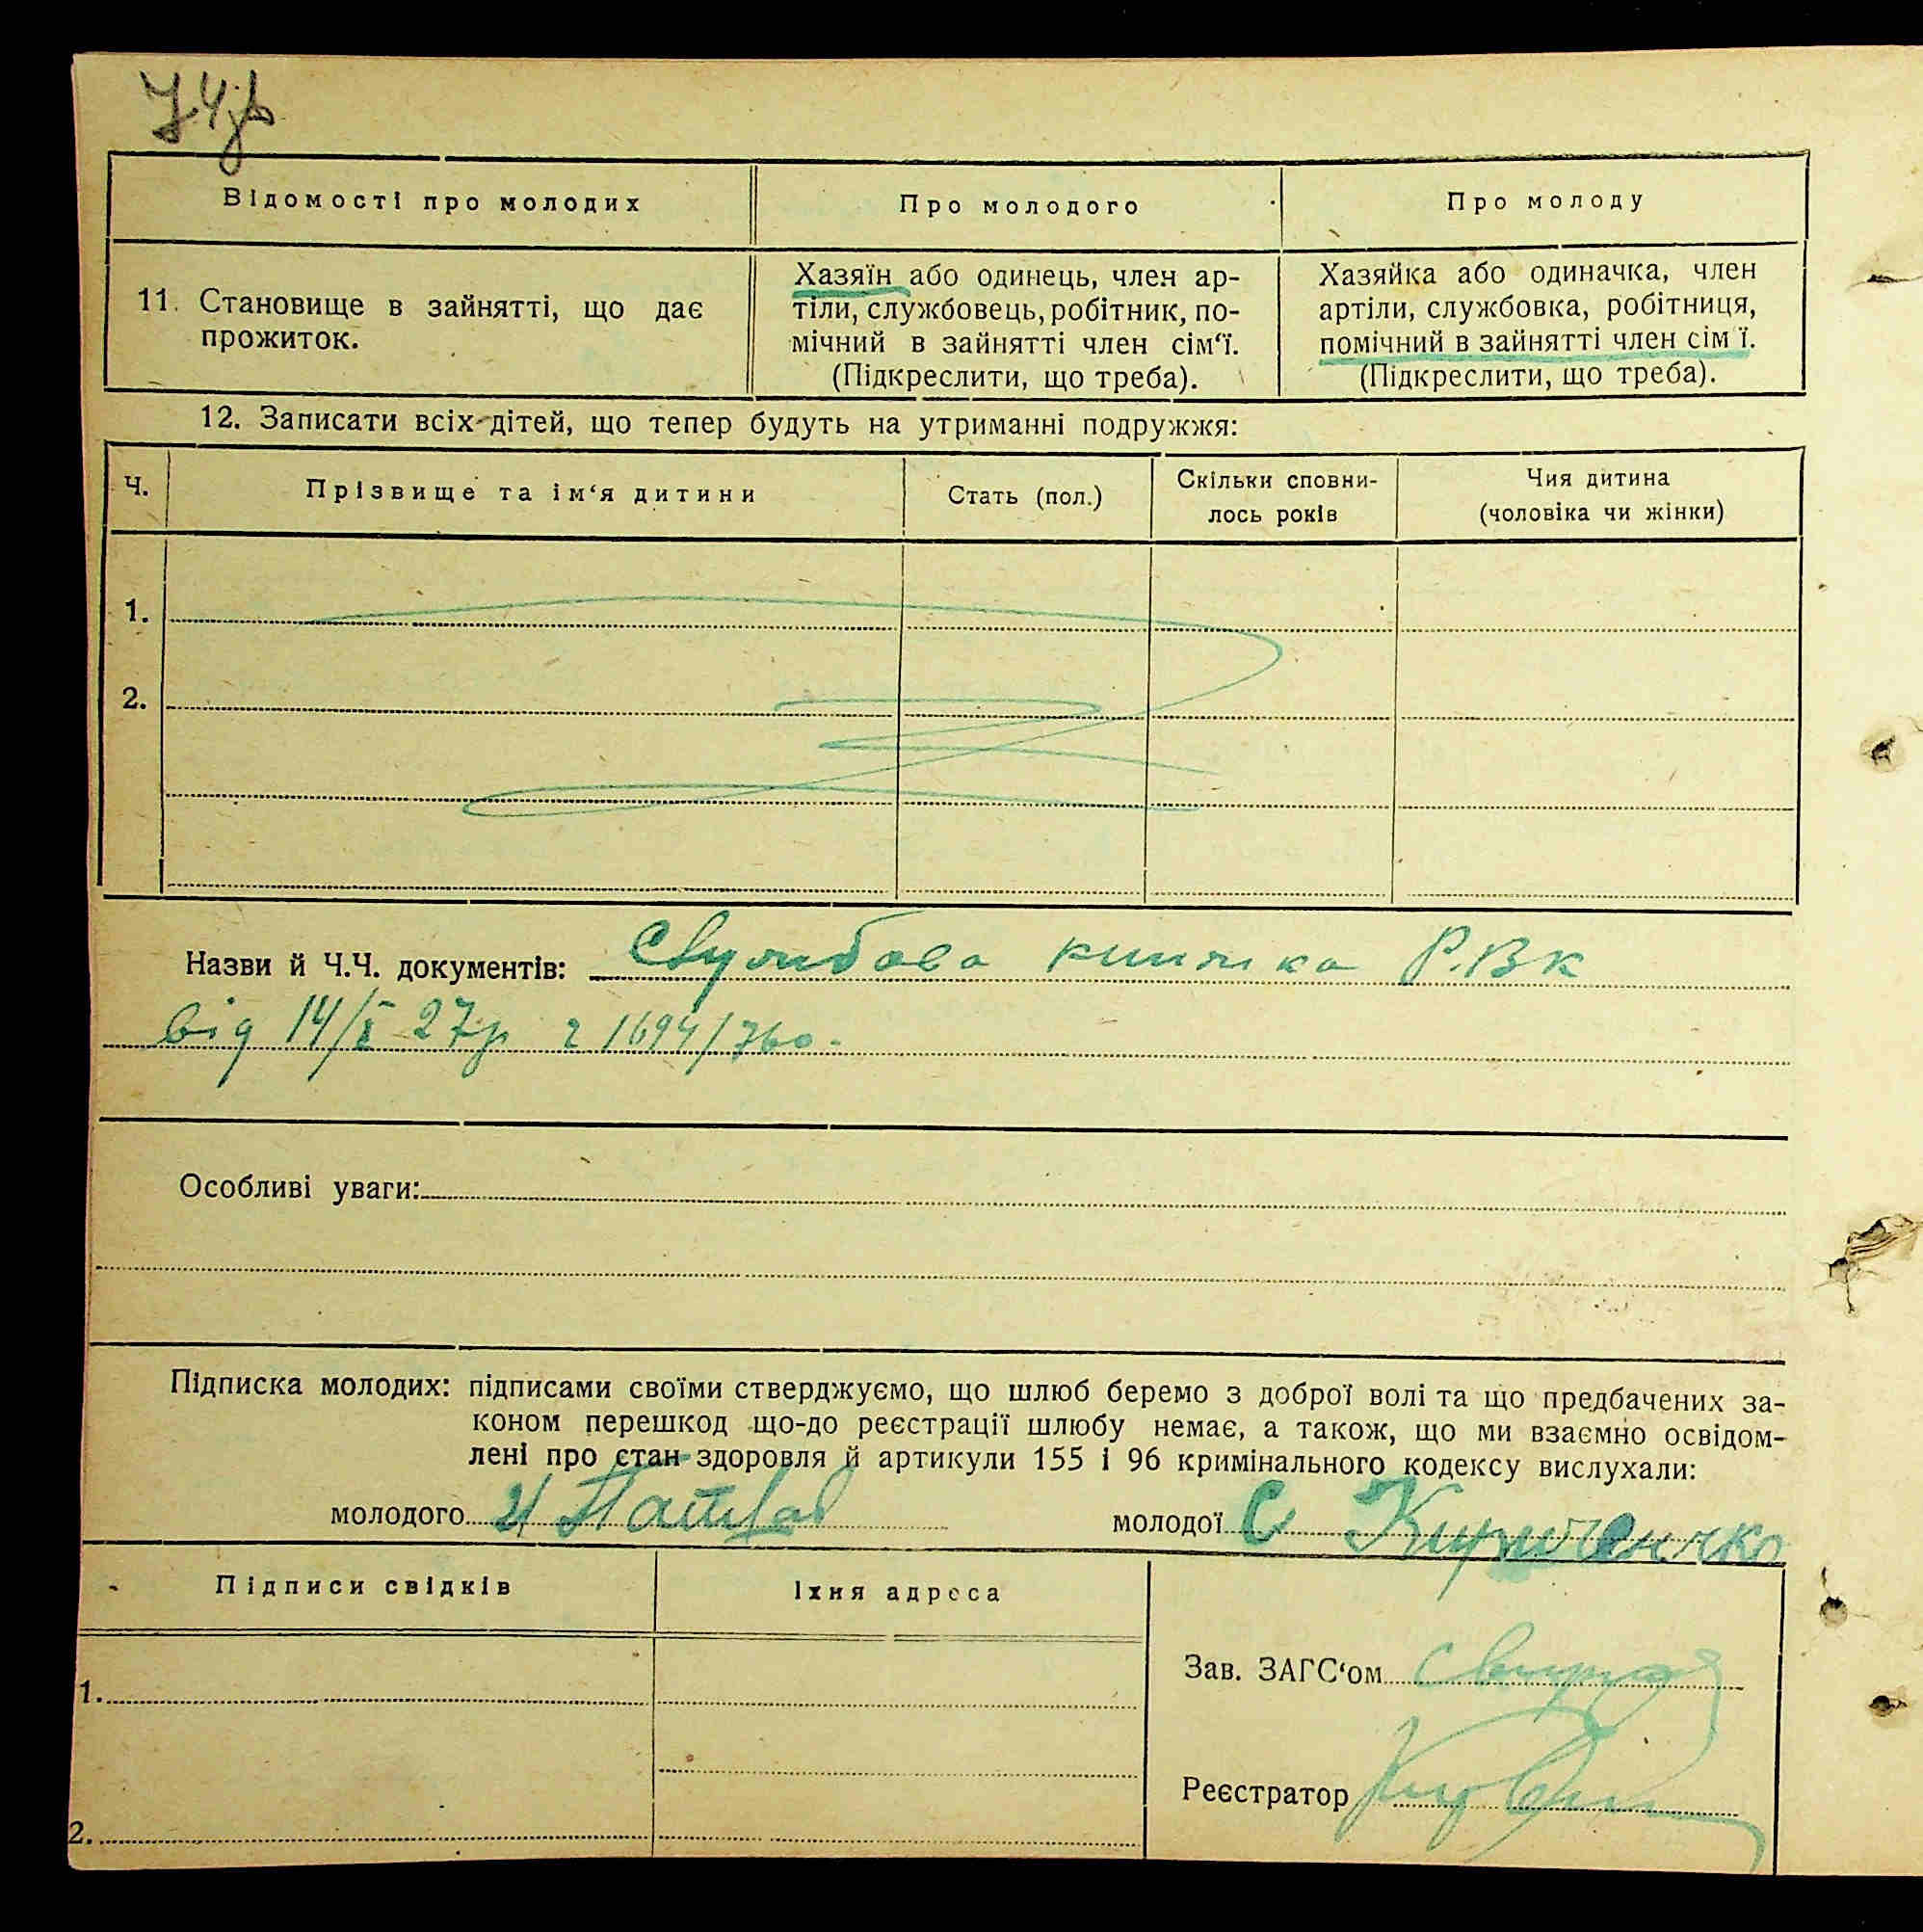 74зв
Відомості про молодих
Про молодого
Про молоду
11. Становище в зайнятті, що дає
прожиток.
Хазяїн або одинець, член ар-
тіли, службовець, робітник, по-
мічний в зайнятті член сім‘ї.
(Підкреслити, що треба).
Хазяйка або одиначка, член
артіли, службовка, робітниця,
помічний в зайнятті член сім ї.
(Підкреслити, що треба).
12. Записати всіх дітей, що тепер будуть на утриманні подружжя:
Ч.
Прізвище та ім‘я дитини
Стать (пол.)
Скільки сповни-
лось років
Чия дитина
(чоловіка чи жінки)
1.
2.
Назви й Ч.Ч. документів: книжка Р.В.К
від 14/X 27р 1694/760.
Особливі уваги:
Підписка молодих: підписами своїми стверджуємо, що шлюб беремо з доброї волі та що предбачених за-
коном перешкод що-до реєстрації шлюбу немає, а також, що ми взаємно освідом-
лені про стан здоровля й артикули 155 і 96 кримінального кодексу вислухали:
молодого
молодої С Кириченко
Підписи свідків
Їхня адреса
1.
2.
Зав. ЗАГС‘ом
Реєстратор